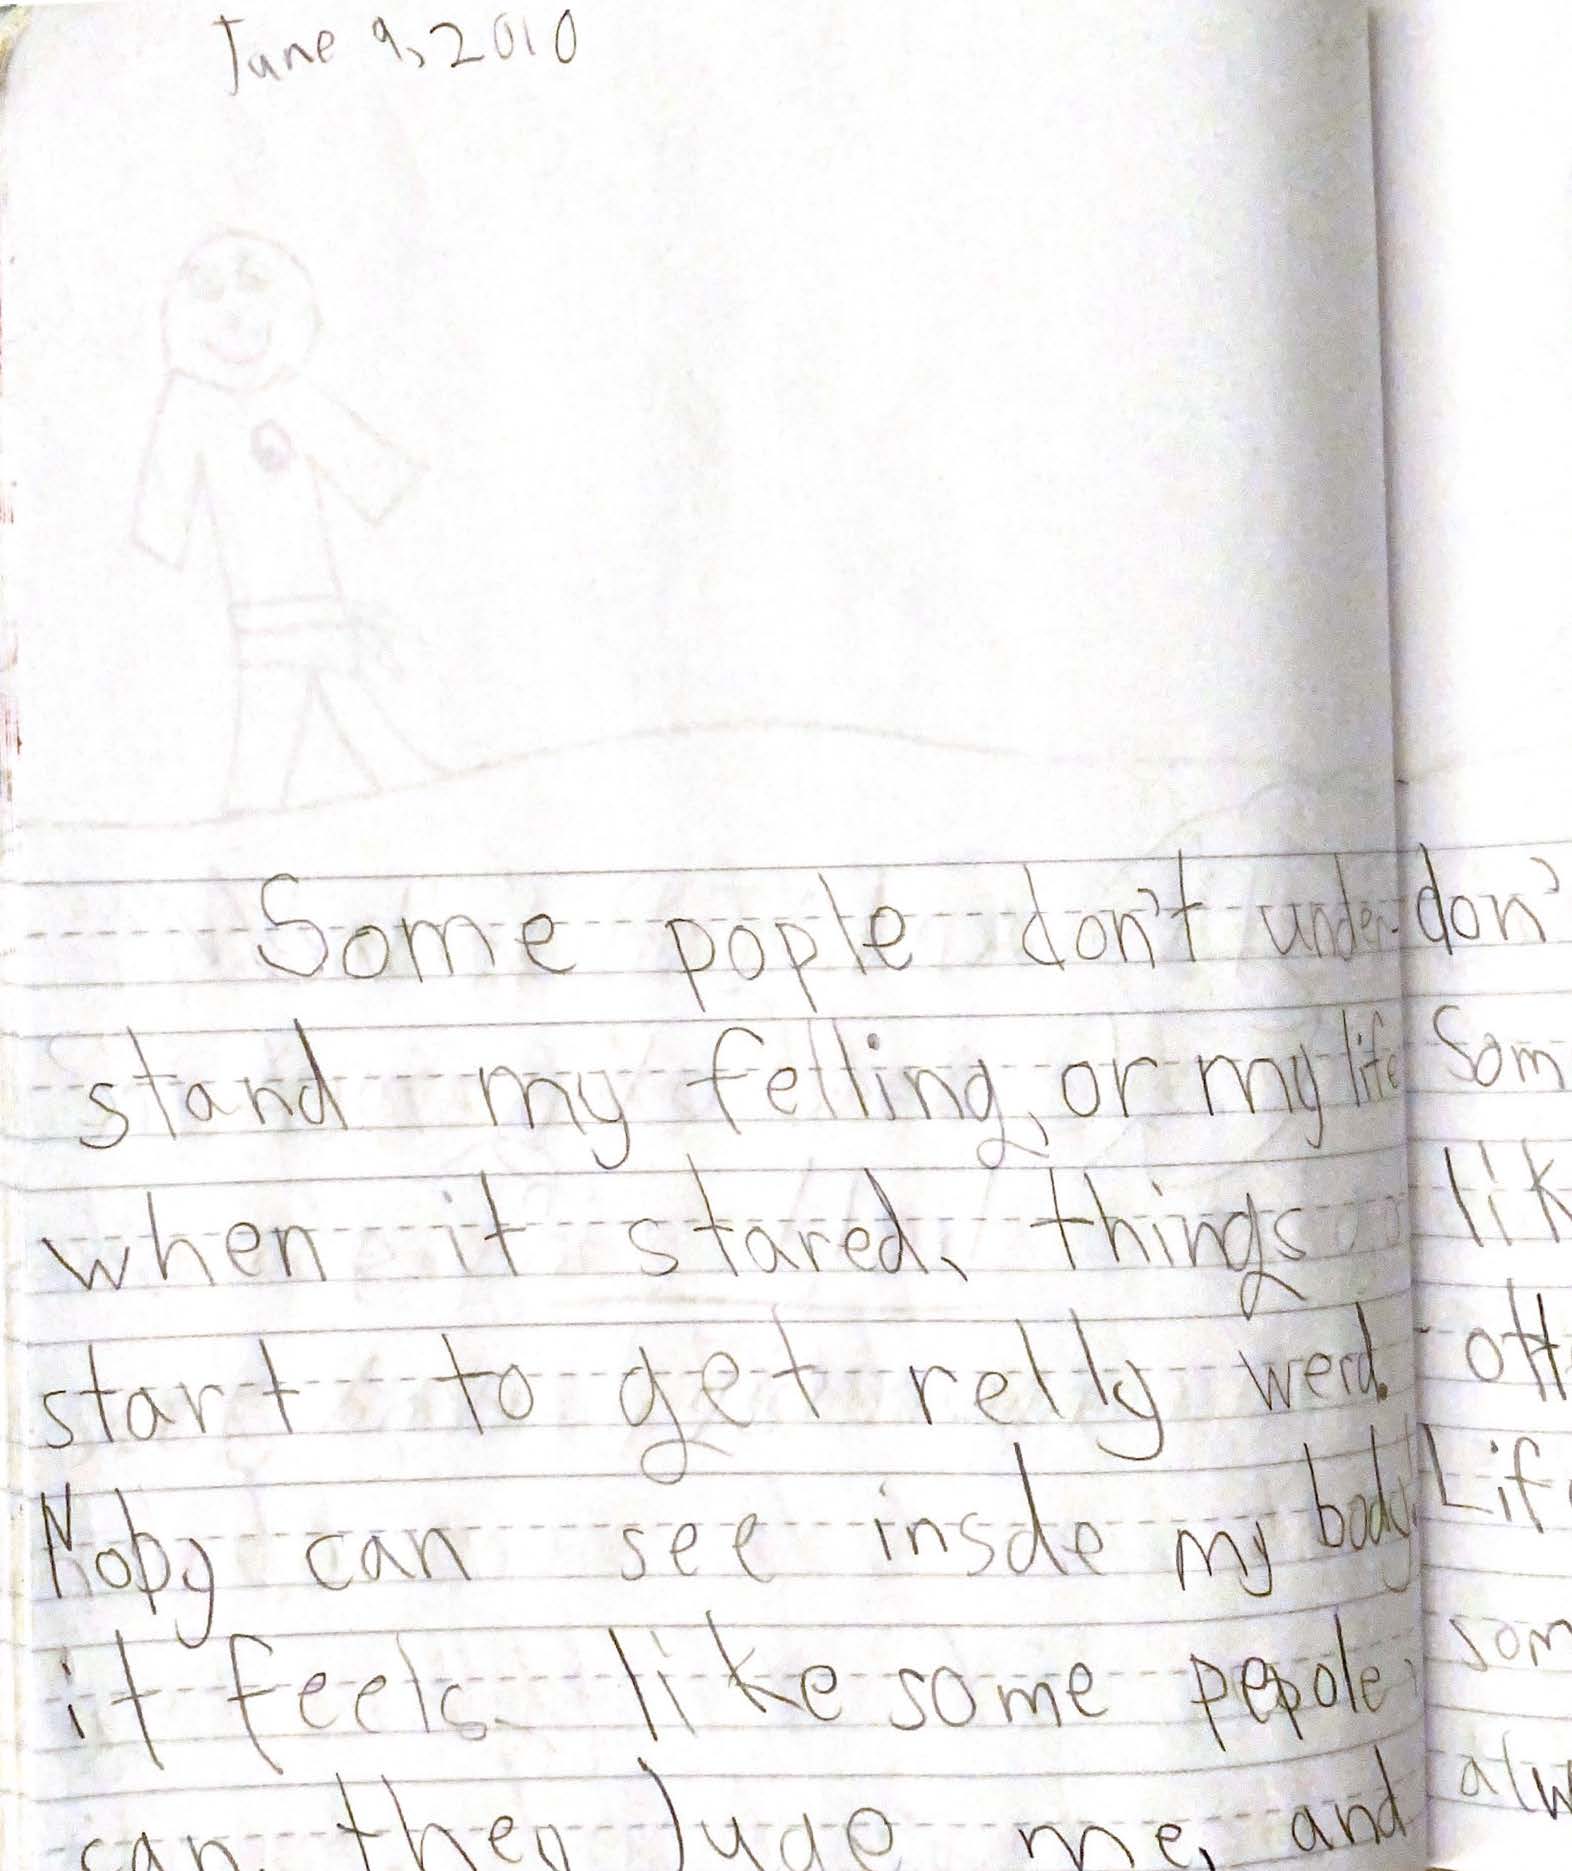 June 9, 2010
Some pople don't under-
stand my felling, or my life
when it stared, things
start to get relly werd.
Noby can see insde my body,
it feels like some pepole
can, they Juge me, and
don'
Som
lik
oth
Life
som
alw